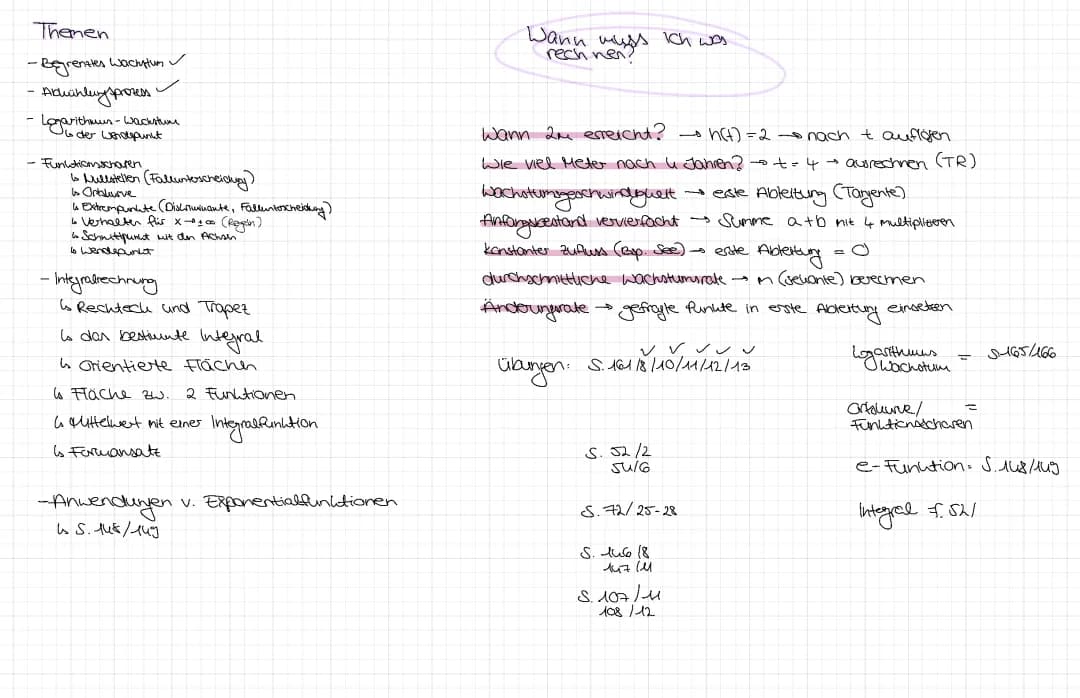 Themen
- Begrenztes Wachstum ✓
- Abkühlungsprozess ✓
- Logarithmus-Wachstum
↳ der Wendepunkt
- Funktionsscharen
↳ Nullstellen (Fallunterscheidung)
↳ Ortskurve
↳ Extrempunkte (Diskriminante, Fallunterscheidung)
↳ Verhalten für x→±∞ (Regeln)
↳ Schnittpunkt mit den Achsen
↳ Wendepunkt
- Integralrechnung
↳ Rechteck und Trapez
↳ das bestimmte Integral
↳ Orientierte Flächen
↳ Fläche zw. 2 Funktionen
↳ Mittelwert mit einer Integralfunktion
↳ Formansatz
- Anwendungen v. Exponentialfunktionen
↳ S. 148/149
Wann muss ich was
rechnen?
Wann 2m erreicht? → h(t) = 2 → nach t auflösen
Wie viel Meter nach 4 Jahren? → t = 4 → ausrechnen (TR)
Wachstumsgeschwindigkeit → erste Ableitung (Tangente)
Anfangsbestand vervierfacht → Summe a+b mit 4 multiplizieren
konstanter Zufluss (Bsp. See) → erste Ableitung = 0
durchschnittliche Wachstumsrate → m (Sekante) berechnen
Änderungsrate → gefragte Punkte in erste Ableitung einsetzen
Übungen: S. 161/8/10/11/12/13
S. 52/2
54/6
S. 72/25-28
S. 146/8
147/11
S. 107/11
108/12
Logarithmus = S. 165/166
Wachstum
Ortskurve/ =
Funktionsscharen
e-Funktion = S. 148/149
Integral = S. 52/